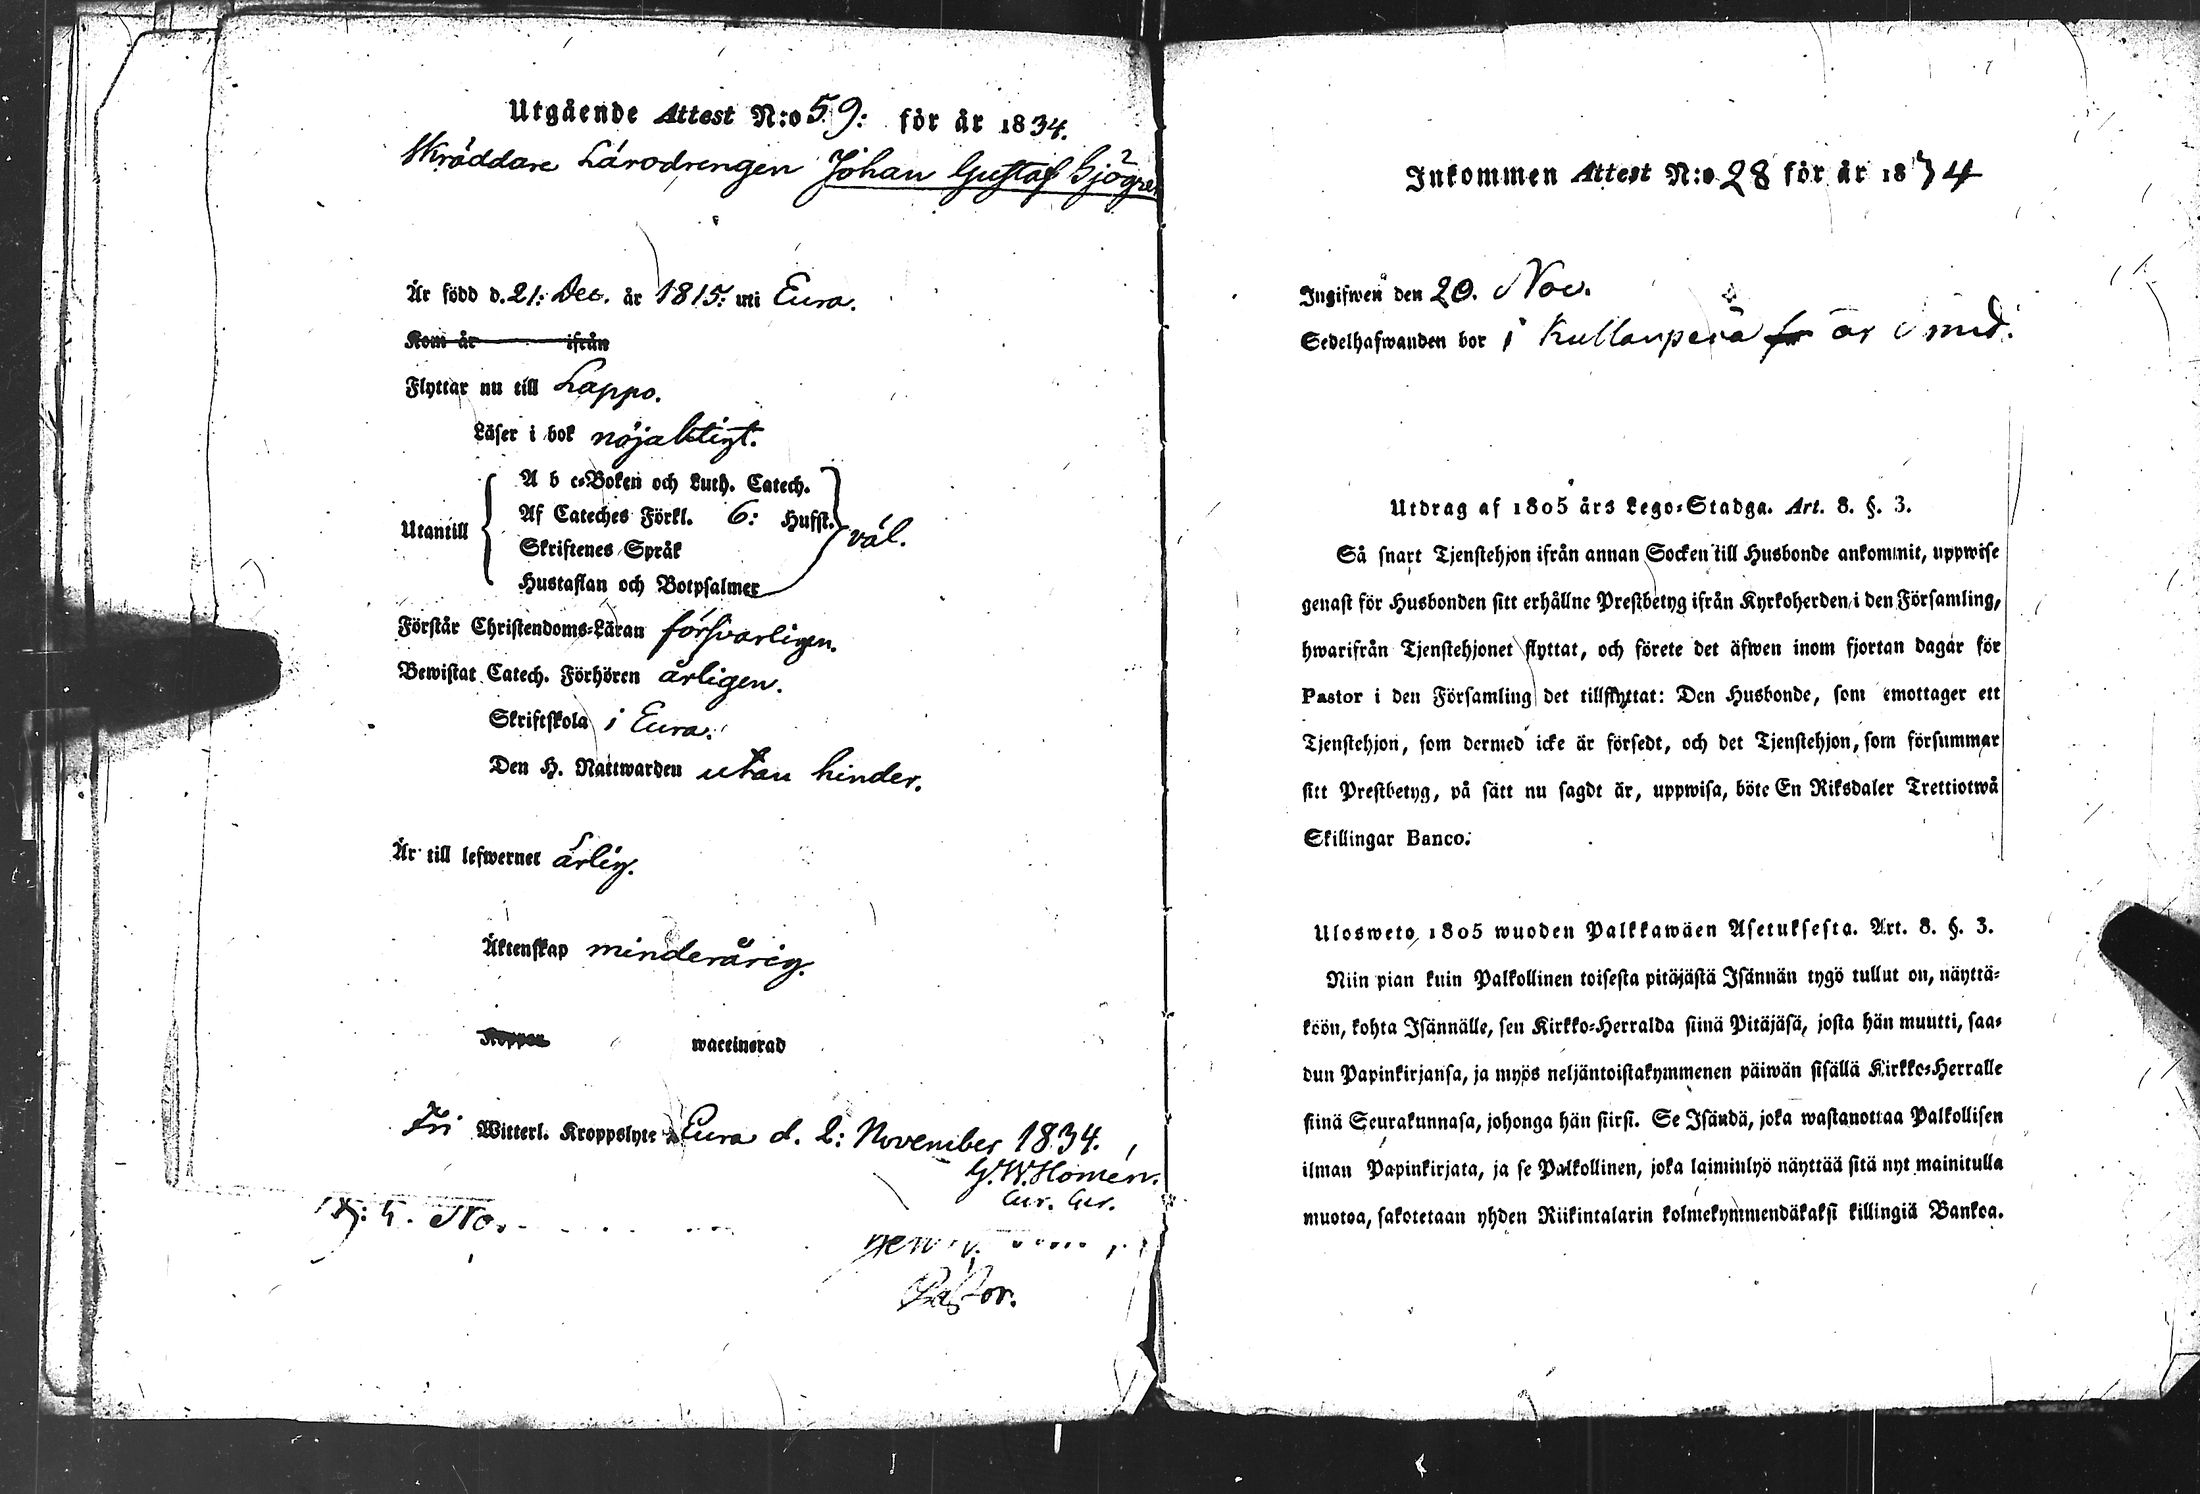 Utgående Attest N:o 59: för år 1834.
Skräddare Lärodrengen Johan Gustaf Sjögren
Är född d. 21: Dec. år 1815: uti Eura.
Kom år ifrån
Flyttar nu till Lappo.
Läser i bok nöjaktigt.
A b c-Boken och Luth. Catech.
Af Cateches Förkl. 6: Hufst.
Utantill väl.
Skriftenes Språk
Hustaflan och Botpsalmer
Förstår Christendoms-Läran försvarligen.
Bewistat Catech. Förhören årligen.
Skriftskola i Eura.
Den H. Nattwarden utan hinder.
Är till lefwernet ärlig.
Äktenskap minderårig.
Koppor waccinerad
Fri Witterl. Kroppslyte Eura d. 2: November 1834.
G. W. Homén.
Cur. Ger.
Pastor.
Inkommen Attest N:o 28 för år 1834
Ingifwen den 20. Nov.
Sedelhafwanden bor i Kullanperä är
Utdrag af 1805 års Lego-Stadga. Art. 8. §. 3.
Så snart Tjenstehjon ifrån annan Socken till Husbonde ankommit, uppwise
genast för Husbonden sitt erhållne Prestbetyg ifrån Kyrkoherden i den Församling,
hwarifrån Tjenstehjonet flyttat, och förete det äfwen inom fjortan dagar för
Pastor i den Församling det tillflyttat: Den Husbonde, som emottager ett
Tjenstehjon, som dermed icke är försedt, och det Tjenstehjon, som försummar
sitt Prestbetyg, på sätt nu sagdt är, uppwisa, böte En Riksdaler Trettiotwå
Skillingar Banco.
Ulosweto 1805 wuoden Palkkawäen Asetuksesta. Art. 8. §. 3.
Niin pian kuin Palkollinen toisesta pitäjästä Isännän tygö tullut on, näyttä-
köön, kohta Isännälle, sen Kirkko-Herralda siinä Pitäjäsä, josta hän muutti, saa-
dun Papinkirjansa, ja myös neljäntoistakymmenen päiwän sisällä Kirkko-Herralle
siinä Seurakunnasa, johonga hän siirsi. Se Isändä, joka wastanottaa Palkollisen
ilman Papinkirjata, ja se Palkollinen, joka laiminlyö näyttää sitä nyt mainitulla
muotoa, sakotetaan yhden Riikintalarin kolmekymmendäkaksi killingiä Bankoa.